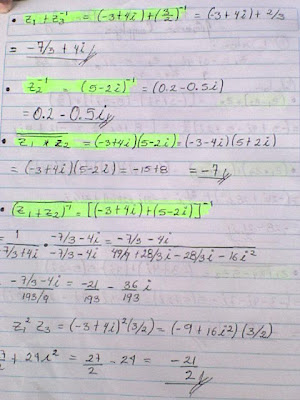 • z₁ + z₃⁻¹ = (-3+4i) + (3/2)⁻¹ = (-3+4i) + 2/3
= -7/3 + 4i
z₂⁻¹ = (5-2i)⁻¹ = (0.2 - 0.5i)
= 0.2 - 0.5i
• z₁ × z₂ = (-3+4i)(5-2i) = (-3-4i)(5+2i)
= (-3+4i)(5-2i) = -15+8 = -7
• (z₁+z₂)⁻¹ = [(-3+4i)+(5-2i)]⁻¹
= 1/-7/3+4i · -7/3-4i/-7/3-4i = -7/3-4i/49/9+28/3i-28/3i-16i²
= -7/3-4i/193/9 = -21/193 - 36/193 i
z₁² z₃ = (-3+4i)²(3/2) = (-9+16i²)(3/2)
/2 + 24i² = 27/2 - 24 = -21/2